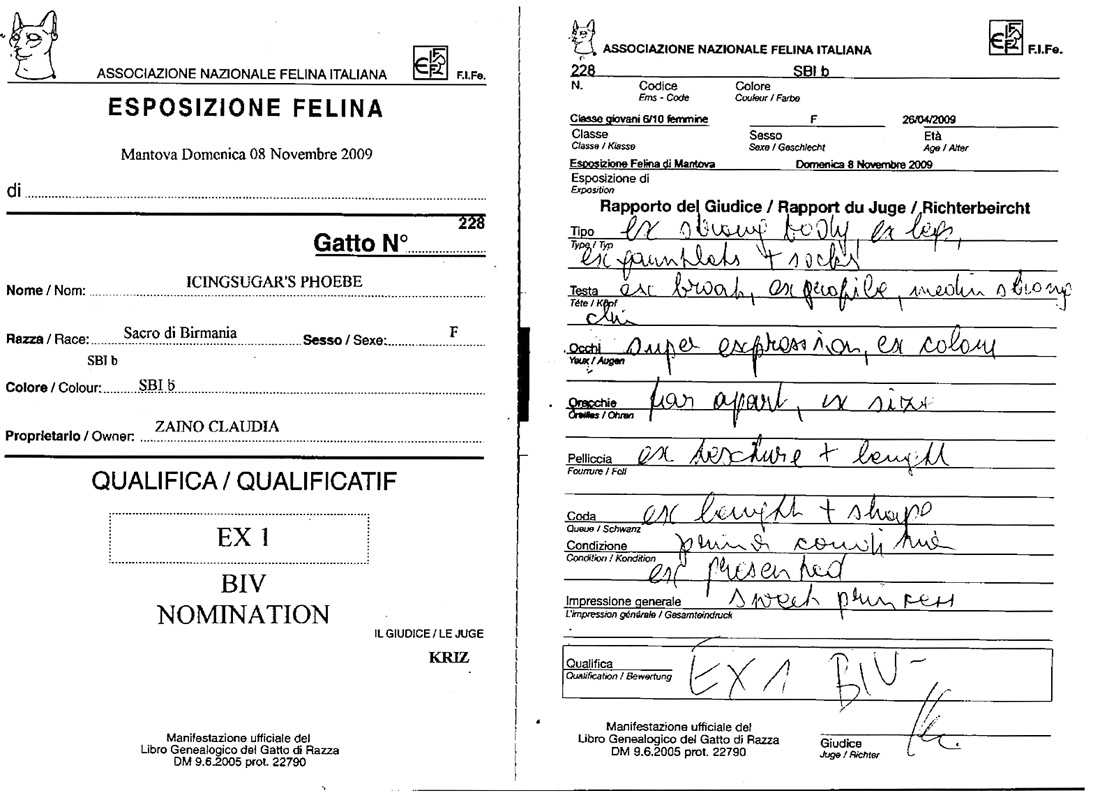 ASSOCIAZIONE NAZIONALE FELINA ITALIANA
F.I.Fe.
ESPOSIZIONE FELINA
Mantova Domenica 08 Novembre 2009
di
228
Gatto N°
Nome / Nom: ICINGSUGAR'S PHOEBE
Razza / Race: Sacro di Birmania Sesso / Sexe: F
SBI b
Colore / Colour: SBI b
Proprietario / Owner: ZAINO CLAUDIA
QUALIFICA / QUALIFICATIF
EX 1
BIV
NOMINATION
IL GIUDICE / LE JUGE
KRIZ
Manifestazione ufficiale del
Libro Genealogico del Gatto di Razza
DM 9.6.2005 prot. 22790
ASSOCIAZIONE NAZIONALE FELINA ITALIANA
F.I.Fe.
228 SBI b
N. Codice Colore
Ems - Code Couleur / Farbe
Classe giovani 6/10 femmine F 26/04/2009
Classe Sesso Età
Classe / Klasse Sexe / Geschlecht Age / Alter
Esposizione Felina di Mantova Domenica 8 Novembre 2009
Esposizione di
Exposition
Rapporto del Giudice / Rapport du Juge / Richterbeircht
Tipo ex strong body, ex legs,
Type / Typ
ex gauntlets + socks
Testa ex broat, ex profile, medium strong
Tête / Kopf
chin
Occhi super expression, ex colour
Yeux / Augen
Orecchie far apart, ex size
Oreilles / Ohren
Pelliccia ex texture + lenght
Fourrure / Fell
Coda ex lenght + shape
Queue / Schwanz
Condizione condition
Condition / Kondition
ex presented
Impressione generale sweet princess
L'impression générale / Gesamteindruck
Qualifica EX 1 BIV
Qualification / Bewertung
Manifestazione ufficiale del
Libro Genealogico del Gatto di Razza
DM 9.6.2005 prot. 22790
Giudice
Juge / Richter